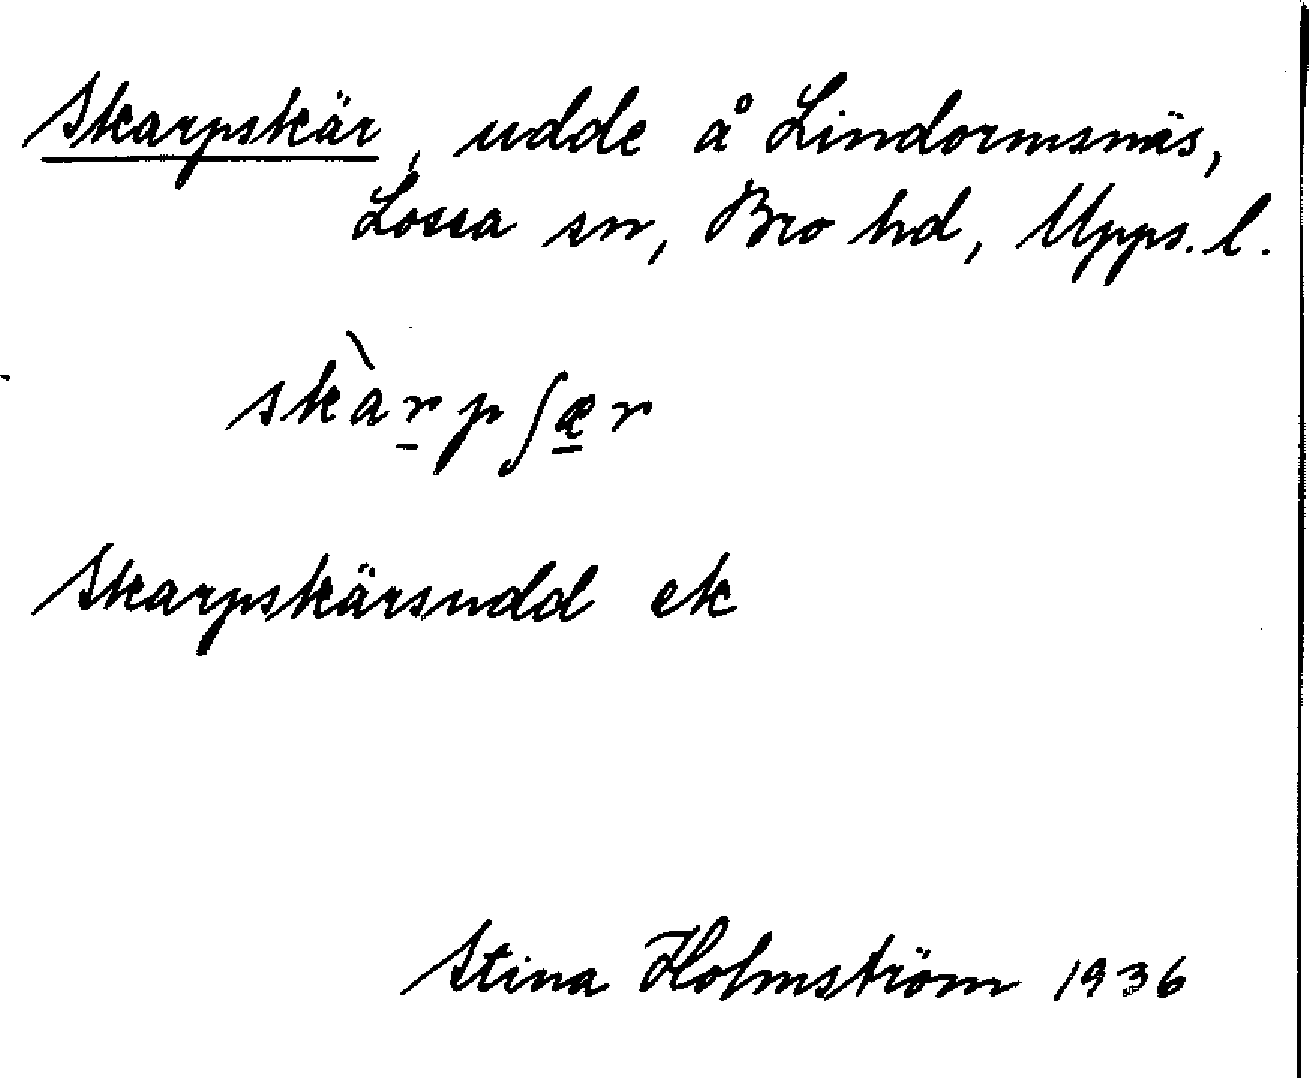 Skarpskär, udde å Lindormsnäs,
Lossa sn, Bro hd, Upps. l.
skàrpʃær
Skarpskärsudd ek
Stina Holmström 1936